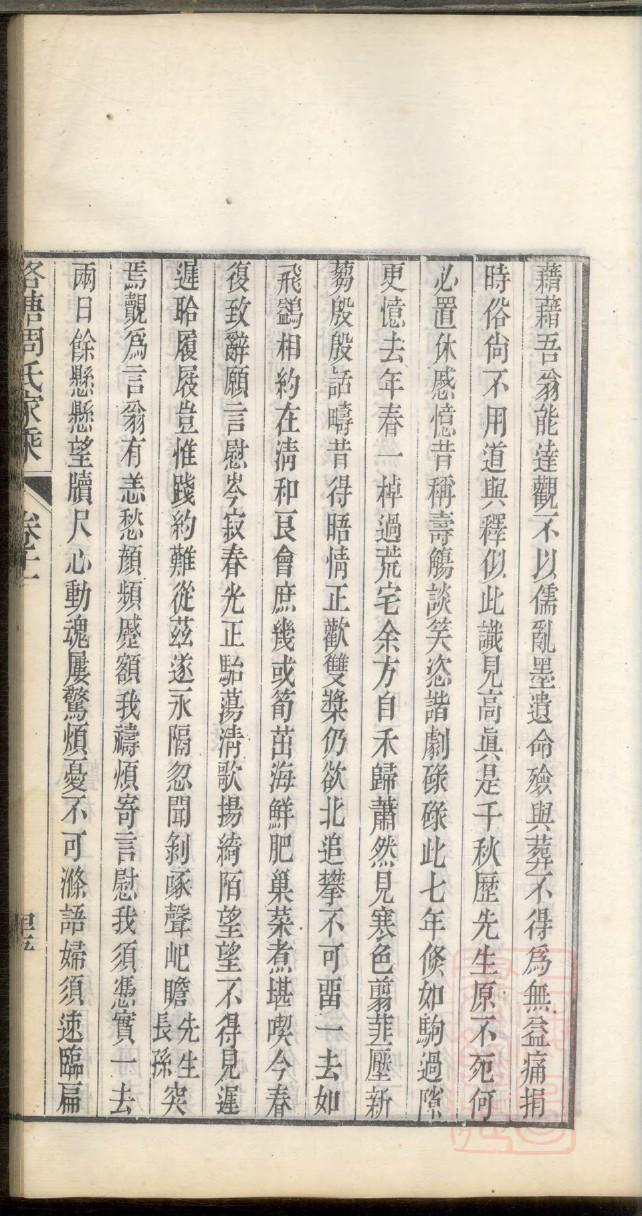 藉藉吾翁能達觀不以儒亂墨遺命殮與葬不得為無益痛捐
時俗尚不用道與釋似此識見高眞是千秋歷先生原不死何
必置休慼憶昔稱壽觴談笑恣諧劇碌碌此七年倐如駒過隙
更憶去年春一棹過荒宅余方自禾歸蕭然見寒色翦韮壓新
蒭殷殷話疇昔得晤情正歡雙槳仍欲北追攀不可畱一去如
飛鷁相約在清和艮會庶幾或筍茁海鮮肥巢菜煮堪喫今春
復致辭願言慰岑寂春光正駘蕩清歌揚綺陌望望不得見遲
遲聆履屐豈惟踐約難從茲遂永隔忽聞剝啄聲屺瞻先生長孫突
焉覿為言翁有恙愁顏頻蹙額我禱煩寄言慰我須憑實一去
兩日餘懸懸望牘尺心動魂屢驚煩憂不可滌語婦須速臨扁
洛塘周氏家乘
卷十二